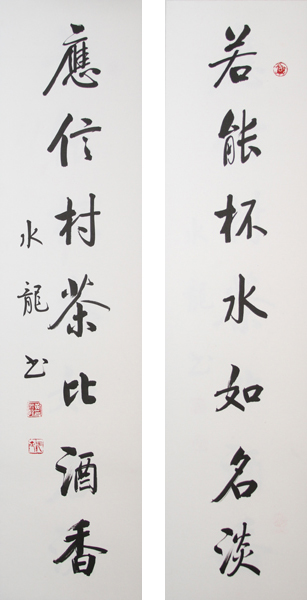 若能杯水如名淡
應信村茶比酒香
水龍书